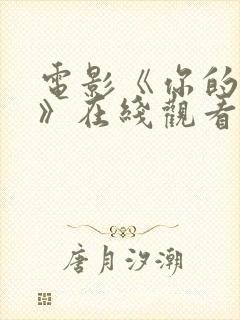 電影《你的
》在綫觀看
唐月汐潮